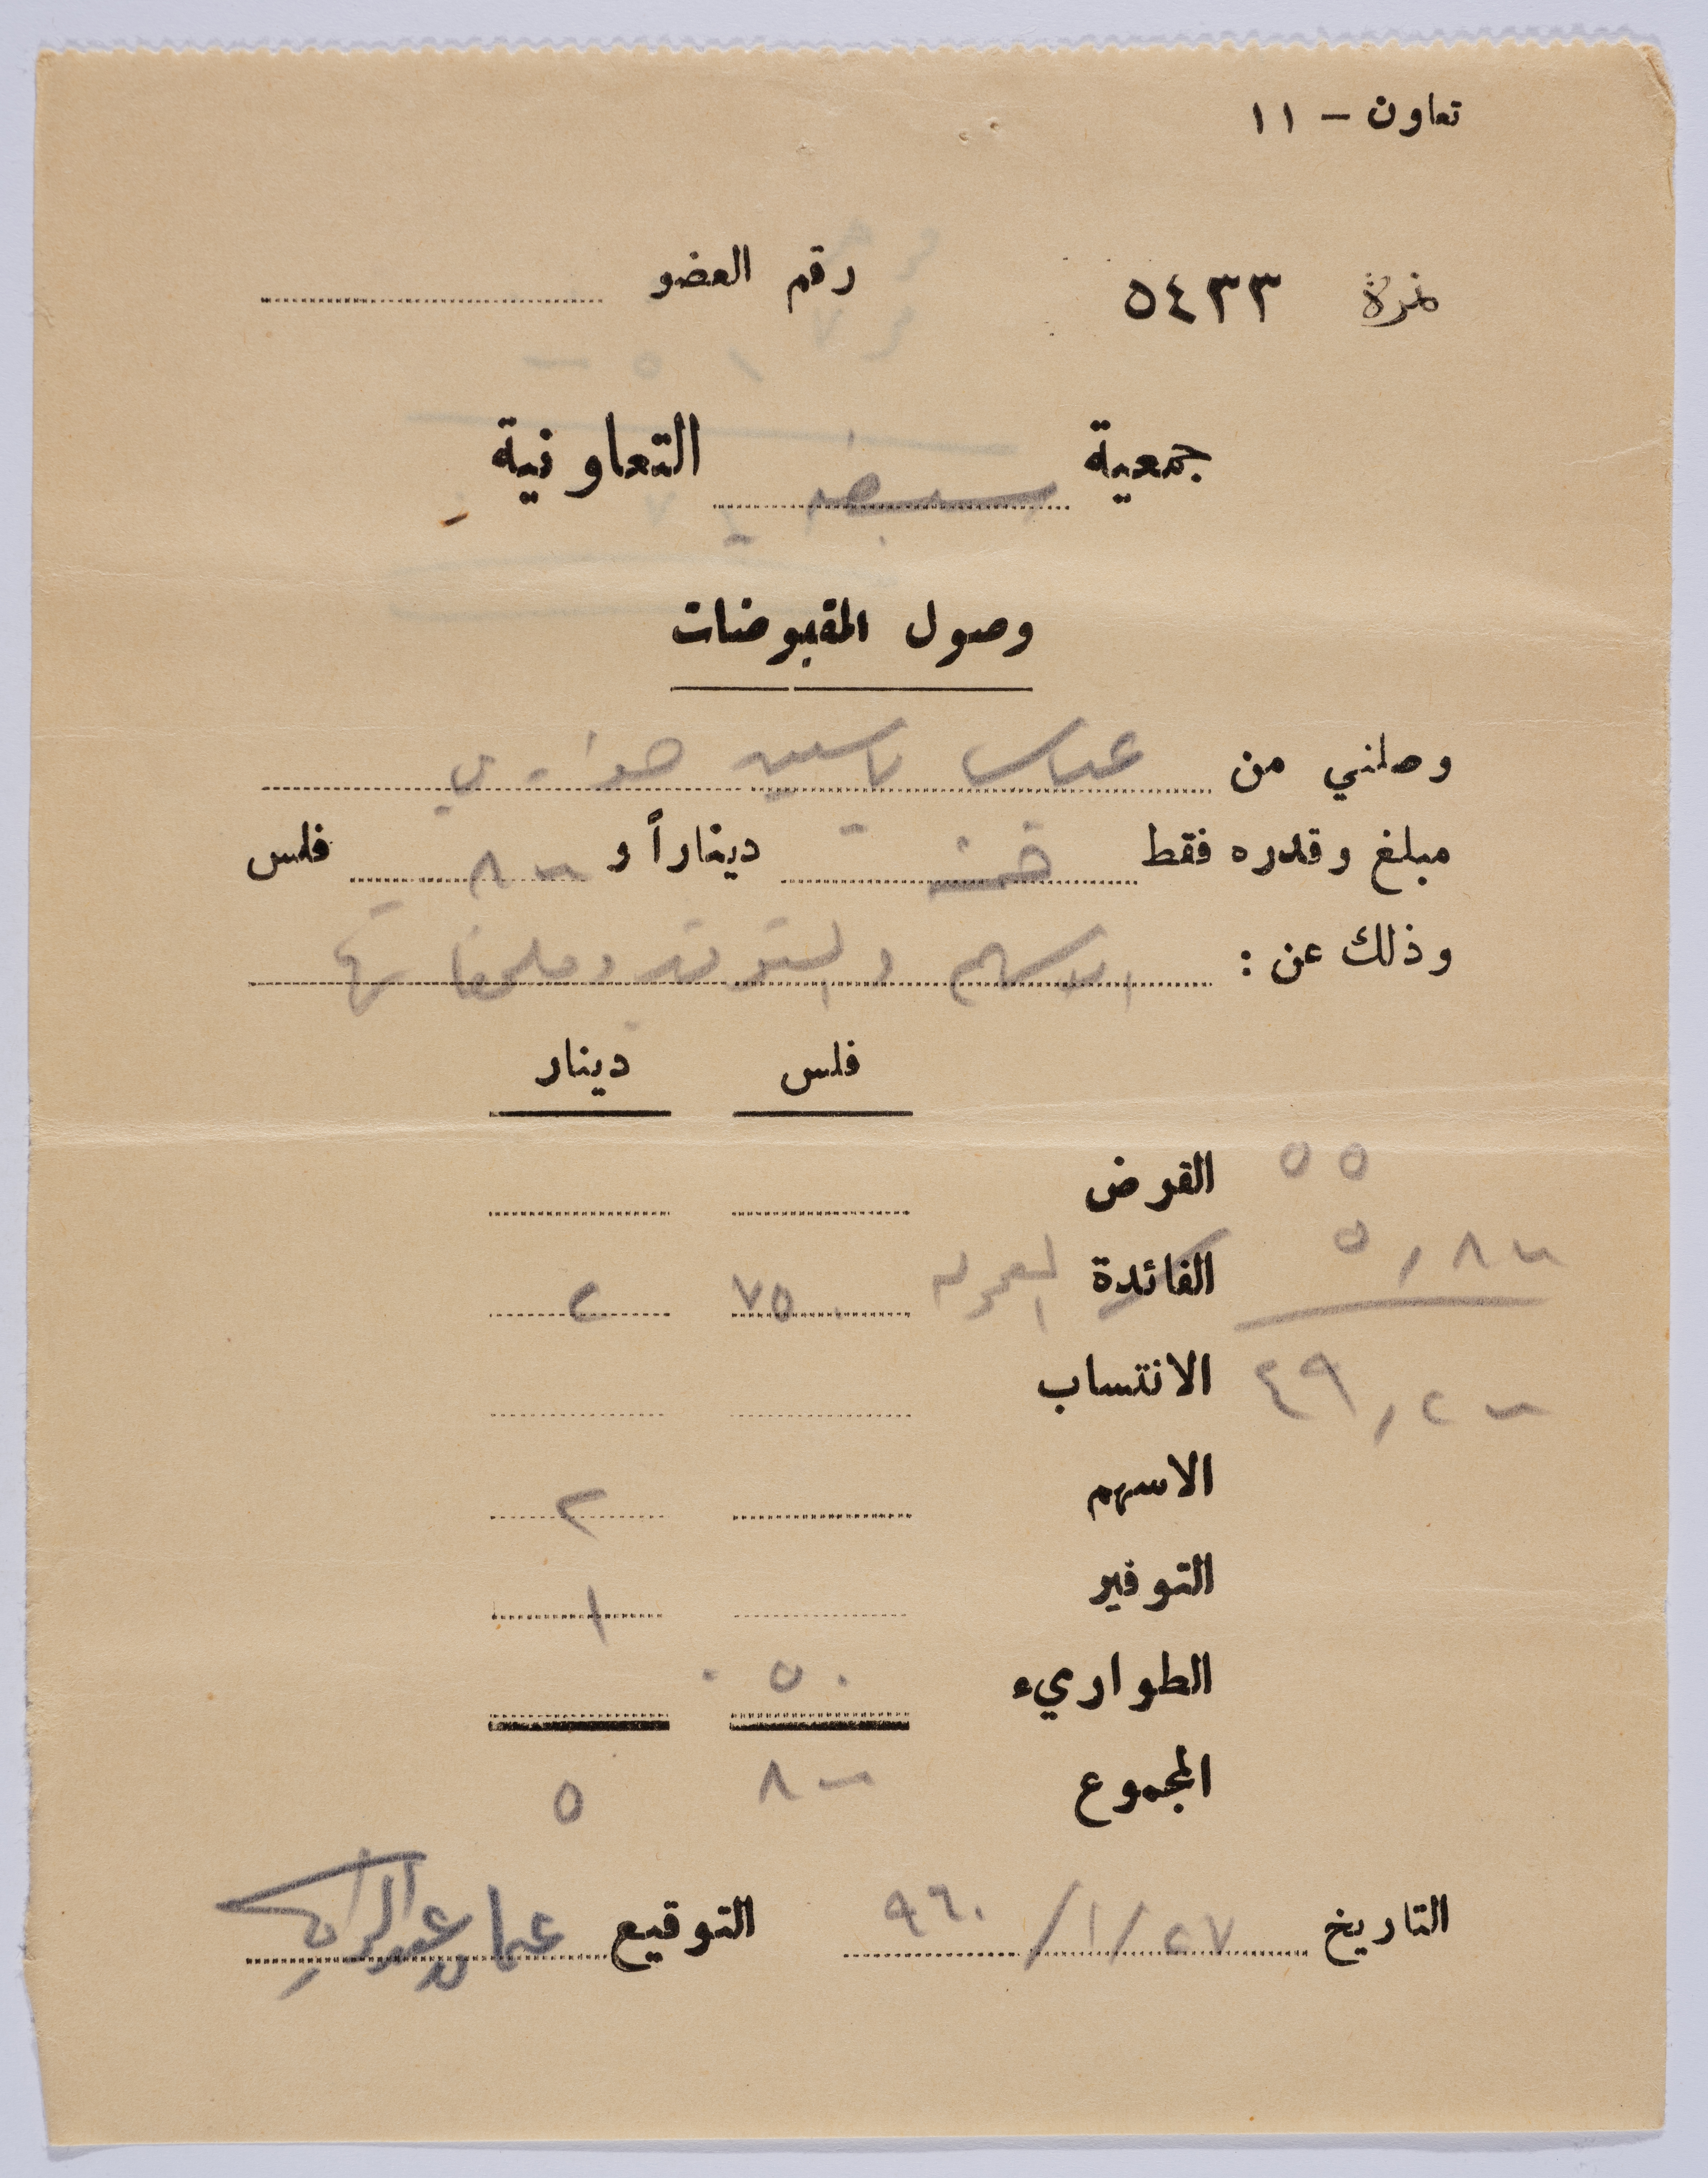 تعاون - ١١
نمرة ٥٤٣٣ رقم العضو
جمعية التعاونية
وصول المقبوضات
وصلني من عباس ياسين هواري
مبلغ وقدره فقط خمسة ديناراً و ٨٠٠ فلس
وذلك عن : الاسهم و وملحقاتها
فلس دينار
٥٥
القرض
٥,٨٠٠
الفائدة ٧٥٠ ٢
٤٩,٢٠٠
الانتساب
الاسهم ٢
التوفير ١
الطواريء ٠٥٠
المجموع ٨٠٠ ٥
التاريخ ٢٧/١/٩٦٠ التوقيع